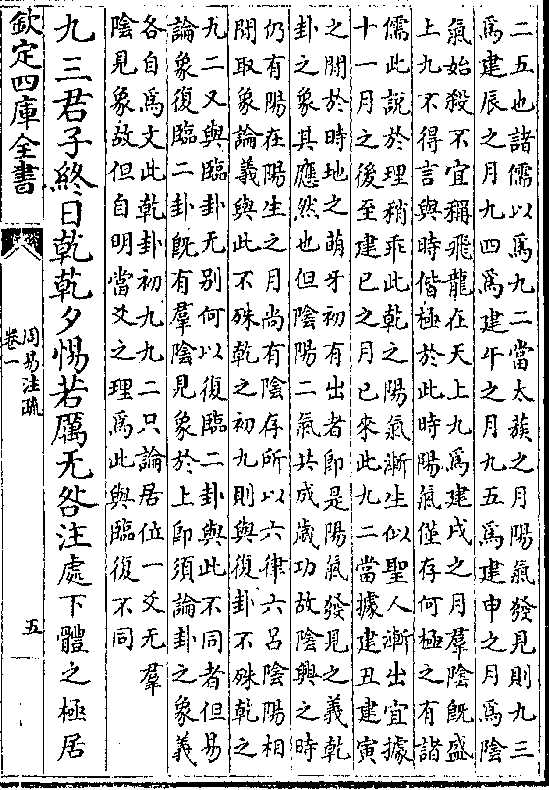 二五也諸儒以爲九二當太蔟之月陽氣發見則九三
爲建辰之月九四爲建午之月九五爲建申之月爲陰
氣始殺不宜稱飛龍在天上九爲建戌之月羣陰旣盛
上九不得言與時偕極於此時陽氣僅存何極之有諸
儒此說於理稍乖此乾之陽氣漸生似聖人漸出宜據
十一月之後至建巳之月已來此九二當據建丑建寅
之間於時地之萌牙初有出者卽是陽氣發見之義乾
卦之象其應然也但陰陽二氣共成歲功故陰興之時
仍有陽在陽生之月尚有陰存所以六律六呂陰陽相
間取象論義與此不殊乾之初九則與復卦不殊乾之
九二又與臨卦无别何以復臨二卦與此不同者但易
論象復臨二卦旣有羣陰見象於上卽須論卦之象義
各自爲文此乾卦初九九二只論居位一爻无羣
陰見象故但自明當爻之理爲此與臨復不同
九三君子終日乾乾夕惕若厲无咎注處下體之極居
欽定四庫全書
周易注疏
卷一
五